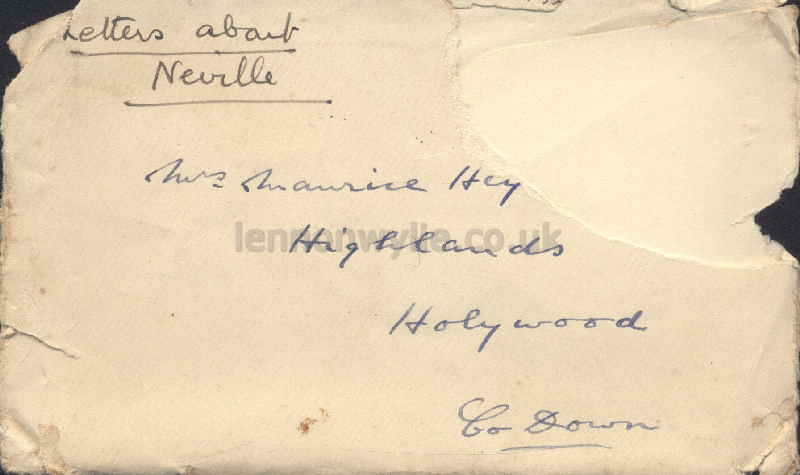 Letters about
Neville
Mrs Maurice Hey
lennonwylie.co.uk
Highlands
Holywood
Co Down